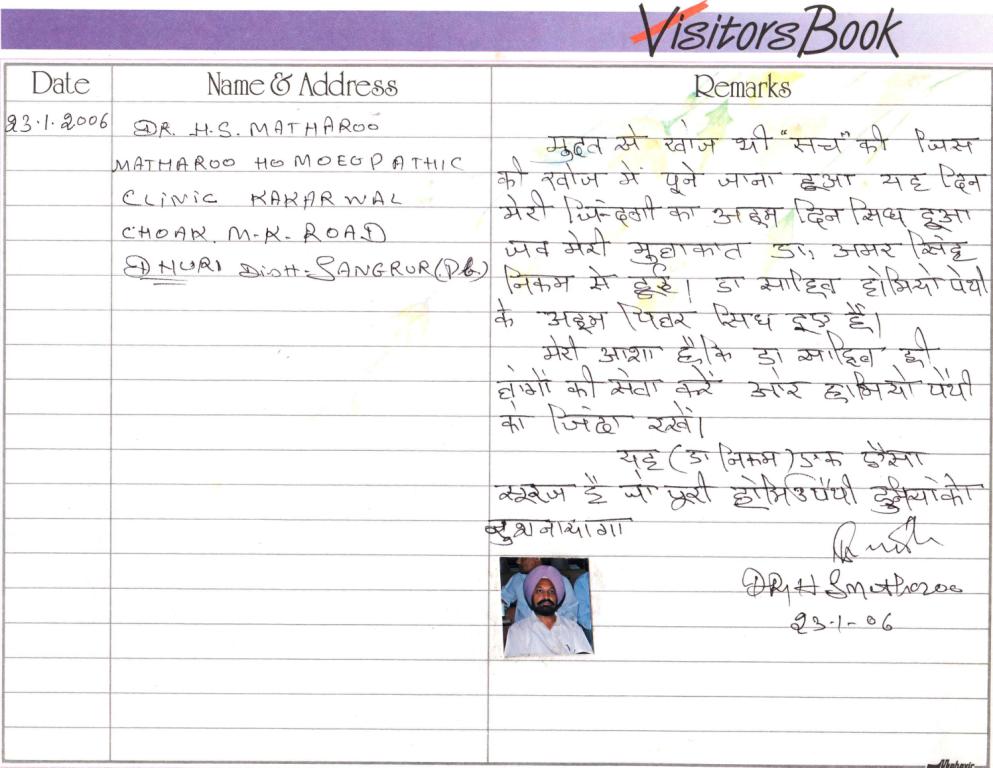 Visitors Book
Date Name & Address Remarks
23.1.2006 DR. H.S. MATHAROO
MATHAROO HOMOEOPATHIC
CLINIC KAKARWAL
CHOAK. M.K. ROAD
DHURI Distt. SANGRUR (PB)
मुद्दत से खोज थी "सच" की जिस
की खोज में पूने जाना हुआ यह दिन
मेरी जिन्दगी का अहम दिन सिध हुआ
जब मेरी मुलाकात डा. अमर सिंह
निकम से हुई। डा साहिब होमियोपैथी
के अहम पिलर सिध हुए हैं।
मेरी आशा है कि डा साहिब ही
लोगों की सेवा करें और होमियोपैथी
को जिंदा रखें।
यह (डा निकम) इक ऐसा
सूरज है जो पूरी होमिउपैथी दुनिया को
रुशनायागा
DR H S Matharoo
23-1-06